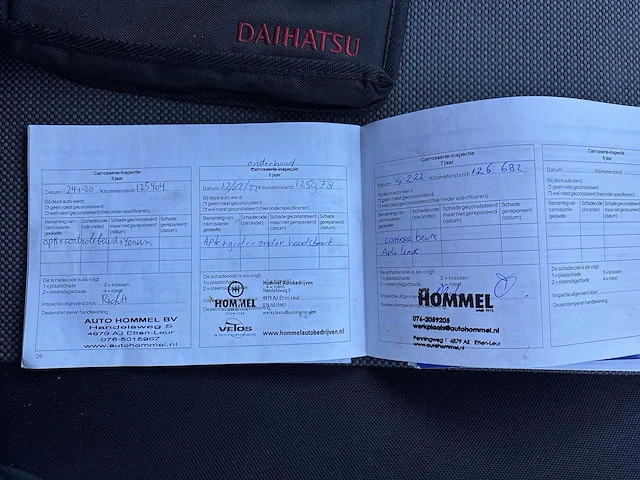 DAIHATSU
Carrosserie-inspectie
5 jaar
Datum: 24-1-20 Kilometerstand: 125464
Bij deze auto werd:
geen roest geconstateerd
wel roest geconstateerd (hieronder specificeren).
Benaming van carrosserie-gedeelte
Schadecode (zie onder)
Schade geconstateerd maar niet gerepareerd (datum)
Schade gerepareerd (datum)
De schadecode is als volgt:
1 = plaatschade 3 = krassen
2 = steenslagschade 4 = roest
Inspectie uitgevoerd door:
Dealerstempel en handtekening:
AUTO HOMMEL BV
Handelsweg 5
4879 AJ Etten-Leur
076-5015967
www.autohommel.nl
26
onderhoud
Carrosserie-inspectie
6 jaar
Datum: Kilometerstand: 125978
Bij deze auto werd:
geen roest geconstateerd
wel roest geconstateerd (hieronder specificeren).
Benaming van carrosserie-gedeelte
Schadecode (zie onder)
Schade geconstateerd maar niet gerepareerd (datum)
Schade gerepareerd (datum)
APK + grote onderhoudsbeurt
De schadecode is als volgt:
HOMMEL
Hommel Autobedrijven
Handelsweg 5
4879 AJ Etten-Leur
VELOS
www.hommelautobedrijven.nl
Carrosserie-inspectie
7 jaar
Datum: 4-2-22 Kilometerstand: 126 682
Bij deze auto werd:
geen roest geconstateerd
wel roest geconstateerd (hieronder specificeren).
Benaming van carrosserie-gedeelte
Schadecode (zie onder)
Schade geconstateerd maar niet gerepareerd (datum)
Schade gerepareerd (datum)
controle beurt
De schadecode is als volgt:
1 = plaatschade 3 = krassen
2 = steenslagschade
HOMMEL
076-2059205
werkplaats@autohommel.nl
Penningweg 1 4879 AE Etten-Leur
www.autohommel.nl
Carrosserie-inspectie
8 jaar
Datum:
Bij deze auto werd:
geen roest geconstateerd
wel roest geconstateerd
Benaming van carrosserie-gedeelte
Schadecode (zie onder)
De schadecode is als volgt:
1 = plaatschade
2 = steenslagschade
Inspectie uitgevoerd door:
Dealerstempel en handtekening: